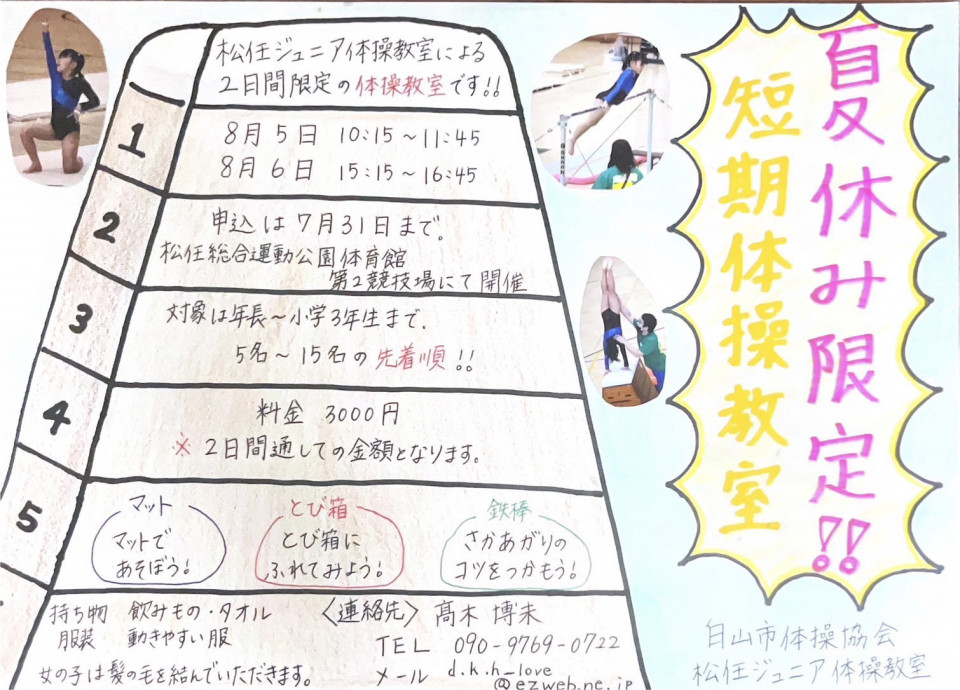 夏休み限定!!
短期体操教室
松任ジュニア体操教室による
2日間限定の体操教室です!!
1
8月5日 10:15～11:45
8月6日 15:15～16:45
2
申込は7月31日まで。
松任総合運動公園体育館
第2競技場にて開催
3
対象は年長～小学3年生まで.
5名～15名の先着順!!
4
料金 3000円
※2日間通しての金額となります。
5
マット
マットで
あそぼう!
とび箱
とび箱に
ふれてみよう!
鉄棒
さかあがりの
コツをつかもう!
持ち物 飲みもの・タオル
服装 動きやすい服
女の子は髪の毛を結んでいただきます。
〈連絡先〉 髙木 博未
TEL 090-9769-0722
メール d.h.h_love
@ezweb.ne.jp
白山市体操協会
松任ジュニア体操教室